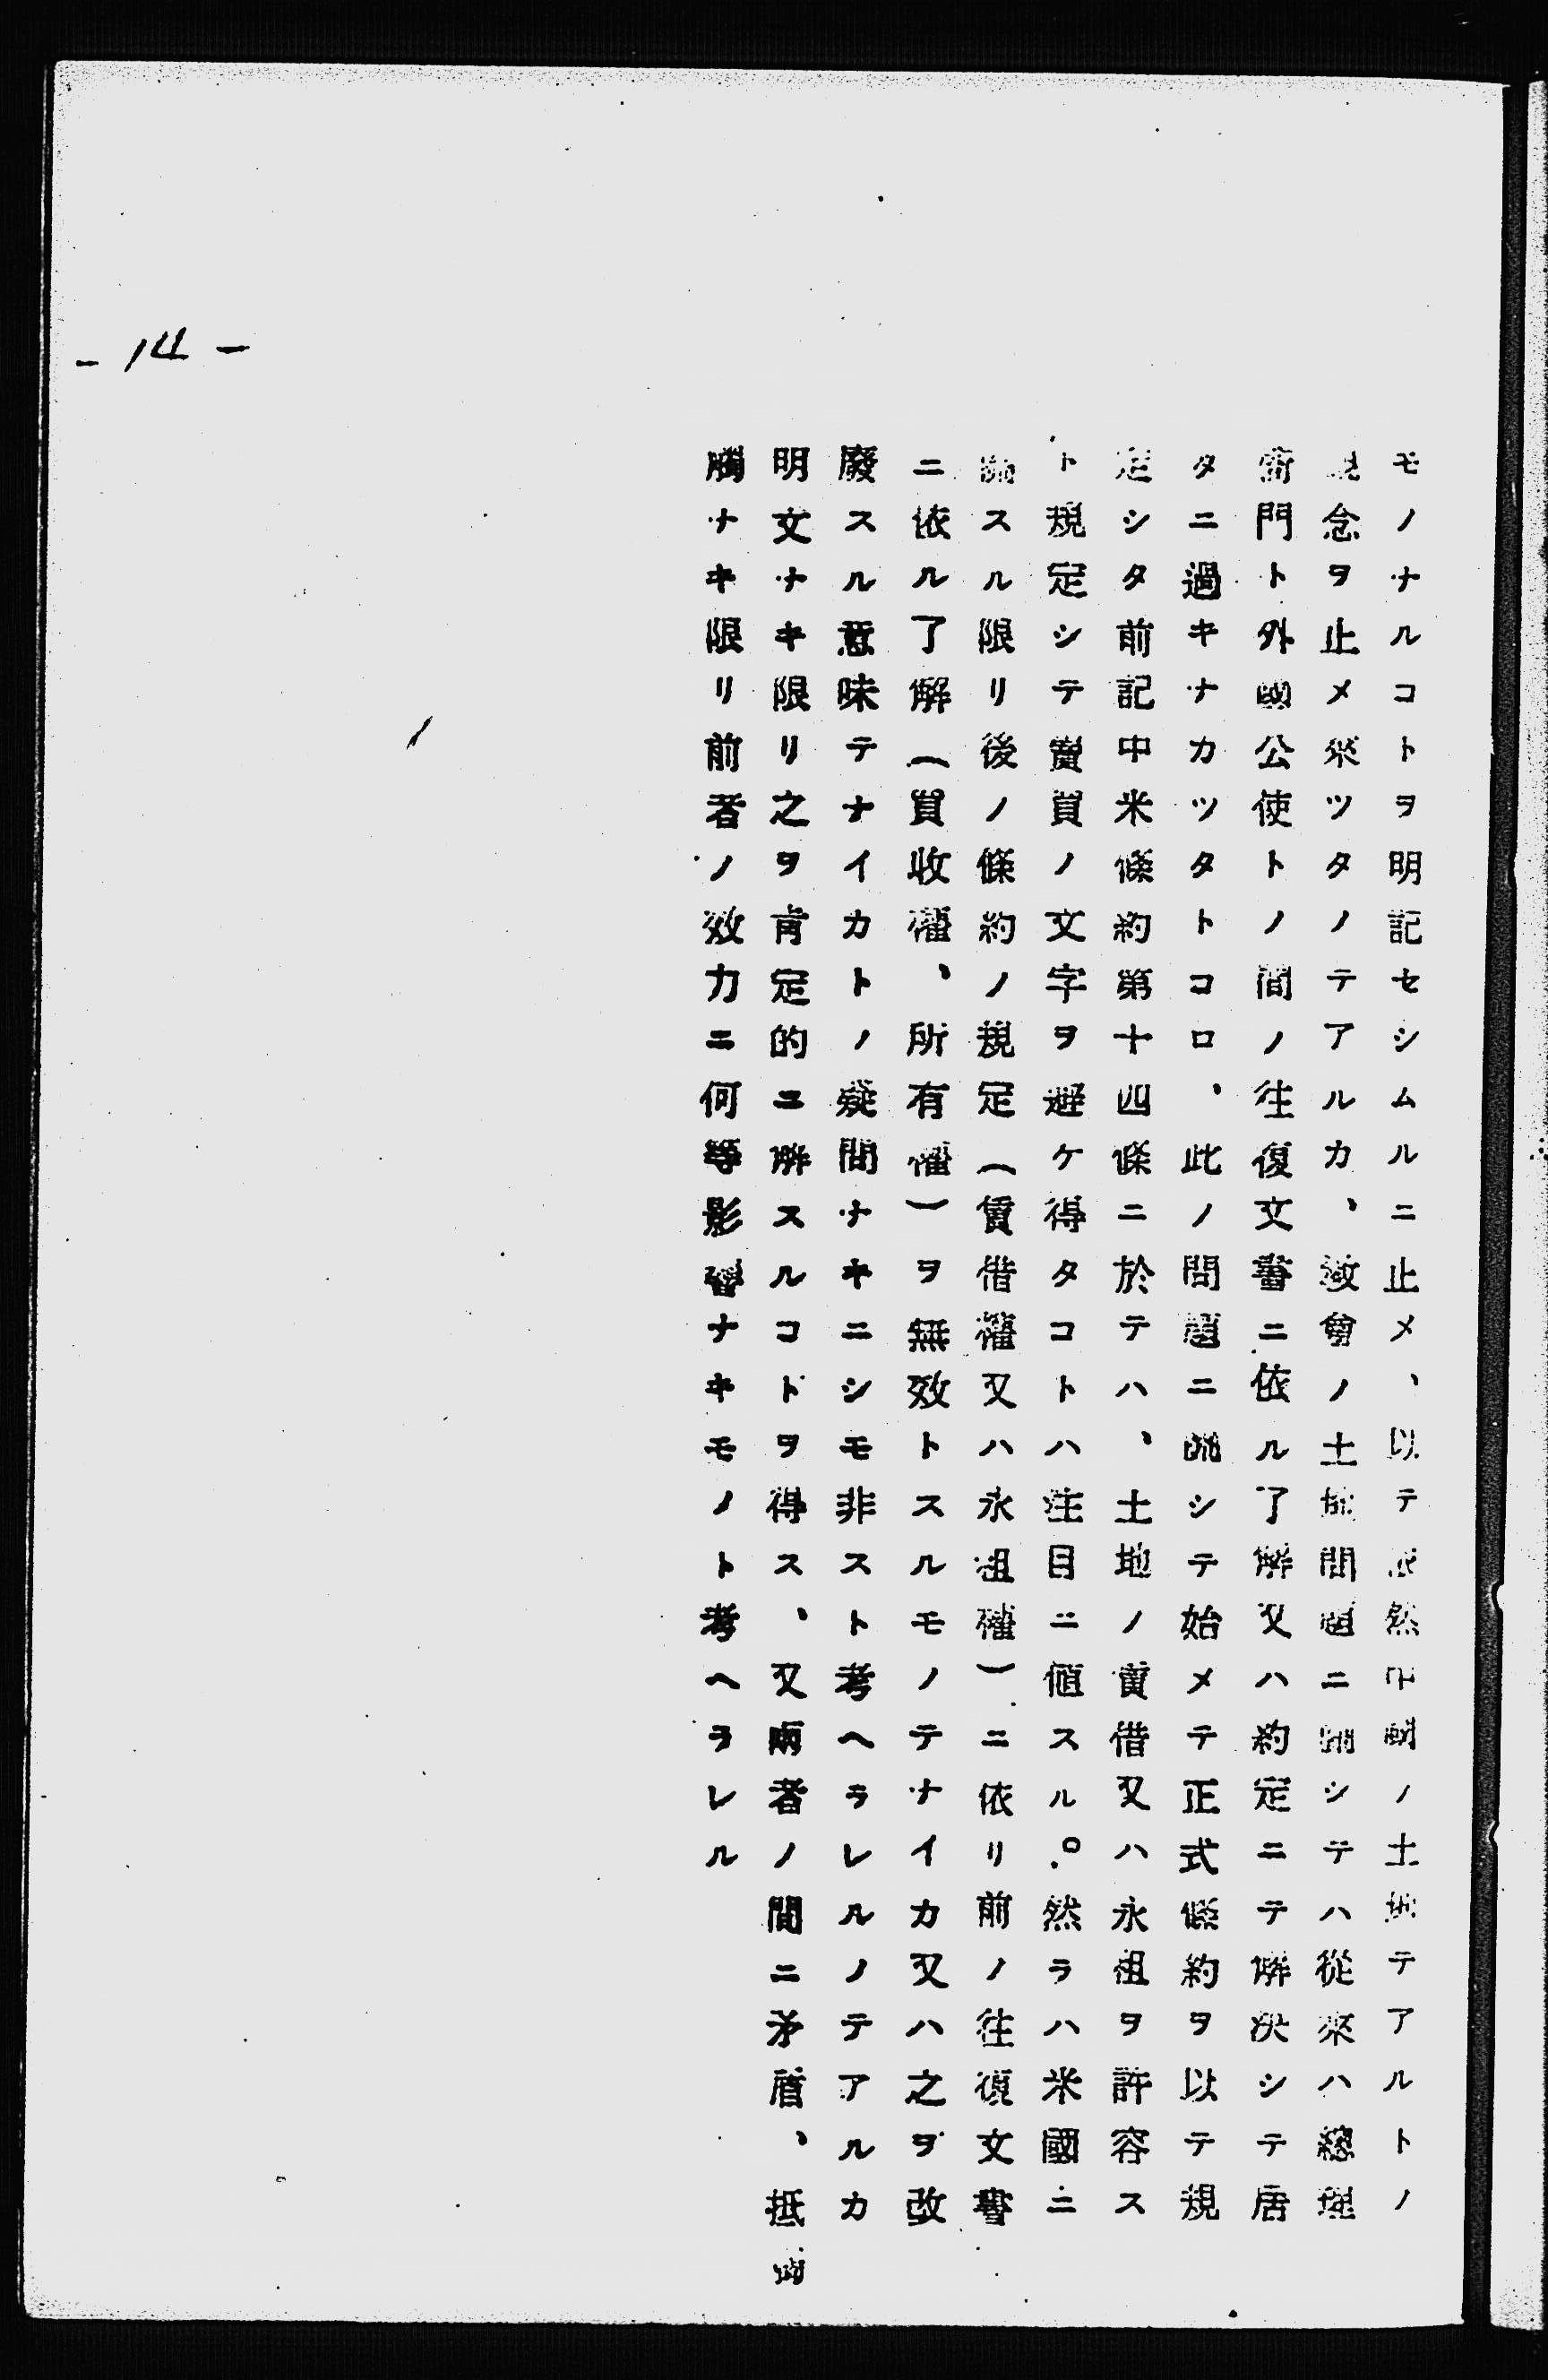 モノナルコトヲ明記セシムルニ止メ、以テ依然中國ノ土地テアルトノ
觀念ヲ止メ來ツタノテアルカ、敎會ノ土地問題ニ關シテハ從來ハ總理
衙門ト外國公使トノ間ノ往復文書ニ依ル了解又ハ約定ニテ解決シテ居
タニ過キナカツタトコロ、此ノ問題ニ關シテ始メテ正式條約ヲ以テ規
定シタ前記中米條約第十四條ニ於テハ、土地ノ賃借又ハ永租ヲ許容ス
ト規定シテ賣買ノ文字ヲ避ケ得タコトハ注目ニ値スル。然ラハ米國ニ
關スル限リ後ノ條約ノ規定(賃借權又ハ永租權)ニ依リ前ノ往復文書
ニ依ル了解(買收權、所有權)ヲ無效トスルモノテナイカ又ハ之ヲ改
廢スル意味テナイカトノ疑問ナキニシモ非スト考ヘラレルノテアルカ
明文ナキ限リ之ヲ肯定的ニ解スルコトヲ得ス、又兩者ノ間ニ矛盾、抵
觸ナキ限リ前者ノ效力ニ何等影響ナキモノト考ヘラレル
- 14 -